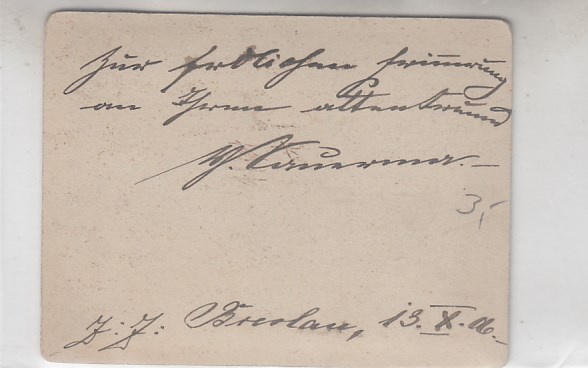 Zur frölichen Erinnerung
an Ihren alten Freund
W. Sauerma.–
3,-
z. Z. Breslau, 13. X. 06.–